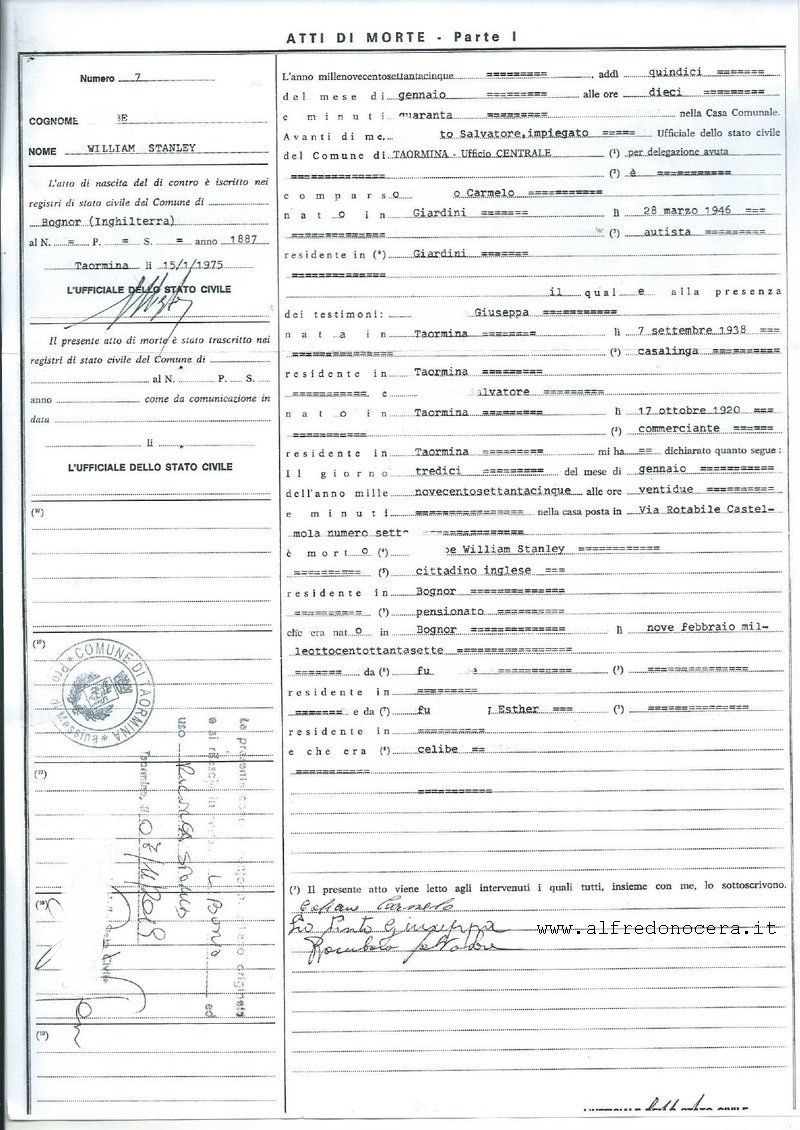 ATTI DI MORTE - Parte I
Numero 7
COGNOME BE
NOME WILLIAM STANLEY
L'atto di nascita del di contro è iscritto nei
registri di stato civile del Comune di
Bognor (Inghilterra)
al N. = P. = S. = anno 1887
Taormina li 15/1/1975
L'UFFICIALE DELLO STATO CIVILE
Il presente atto di morte è stato trascritto nei
registri di stato civile del Comune di
al N. P. S.
anno come da comunicazione in
data
li
L'UFFICIALE DELLO STATO CIVILE
(10)
(10)
COMUNE DI TAORMINA
(10)
(10)
(10)
L'anno millenovecentosettantacinque ========= , addì quindici =======
del mese di gennaio ========= alle ore dieci =========
e minuti quaranta ========= nella Casa Comunale.
Avanti di me, to Salvatore, impiegato ===== Ufficiale dello stato civile
del Comune di TAORMINA - Ufficio CENTRALE (¹) per delegazione avuta
============== (²) è ===========
comparso o Carmelo ===========
nato in Giardini ======= lì 28 marzo 1946 ===
============== (³) autista =========
residente in (*) Giardini =======
==============
il quale alla presenza
dei testimoni: Giuseppa ===========
nata in Taormina ======== lì 7 settembre 1938 ===
============== (³) casalinga ==========
residente in Taormina =========
=========== e Salvatore =========
nato in Taormina ========= lì 17 ottobre 1920 ===
=========== (³) commerciante ======
residente in Taormina ========= mi ha == dichiarato quanto segue:
Il giorno tredici ========= del mese di gennaio ===========
dell'anno mille novecentosettantacinque alle ore ventidue ==========
e minuti ================ nella casa posta in Via Rotabile Castel-
mola numero sett ==============
è morto (⁴) be William Stanley ============
========== (⁵) cittadino inglese ===
residente in Bognor ==============
========== (³) pensionato ==========
che era nato in Bognor ============== lì nove febbraio mil-
leottocentottantasette =================
======= da (⁴) fu ============ (³) ===============
residente in =========
======= e da (⁴) fu Esther === (³) ===============
residente in ==========
e che era (⁶) celibe ==
===========
===========
(⁷) Il presente atto viene letto agli intervenuti i quali tutti, insieme con me, lo sottoscrivono.
www.alfredonocera.it